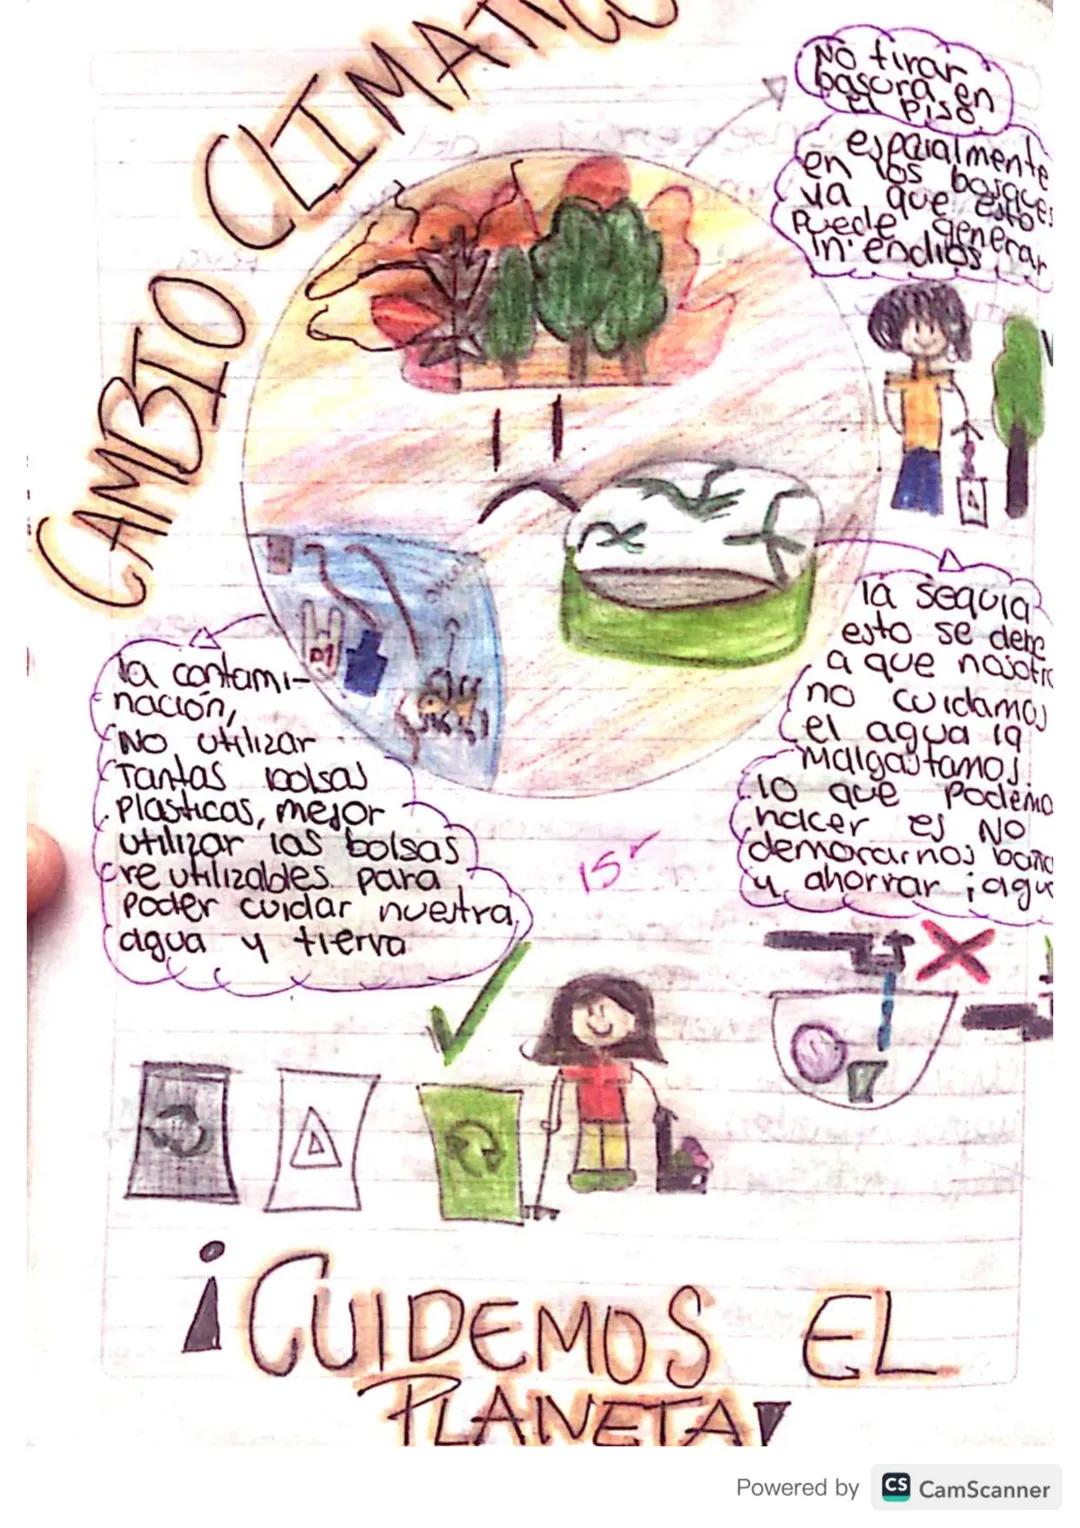 CAMBIO CLIMATICO
No tirar
basura en
el piso
espcialmente
en los bosques
ya que esto
puede generar
in'endios
la sequia
esto se debe
a que
no cuidamos
el agua la
malgastamos
lo que
hacer es No
demorarnos
y ahorrar ¡agu
la contami-
nación,
No utilizar
Tantas bolsas
plasticas, mejor
utilizar las bolsas
re utilizables para
poder cuidar nuestra
agua y tierra
15
¡CUIDEMOS EL
PLANETA!
Powered by CS CamScanner